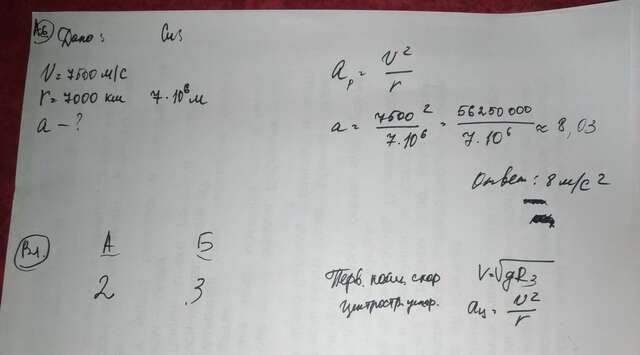 А6. Дано: Си:
V = 7500 м/с
r = 7000 км 7·10⁶ м
a – ?
aₚ = v²/r
a = 7500²/7·10⁶ = 56250000/7·10⁶ ≈ 8,03
Ответ: 8 м/с²
В1. А Б
2 3
Перв. косм. скор V = √gR₃
Центростр. ускор. aц = v²/r